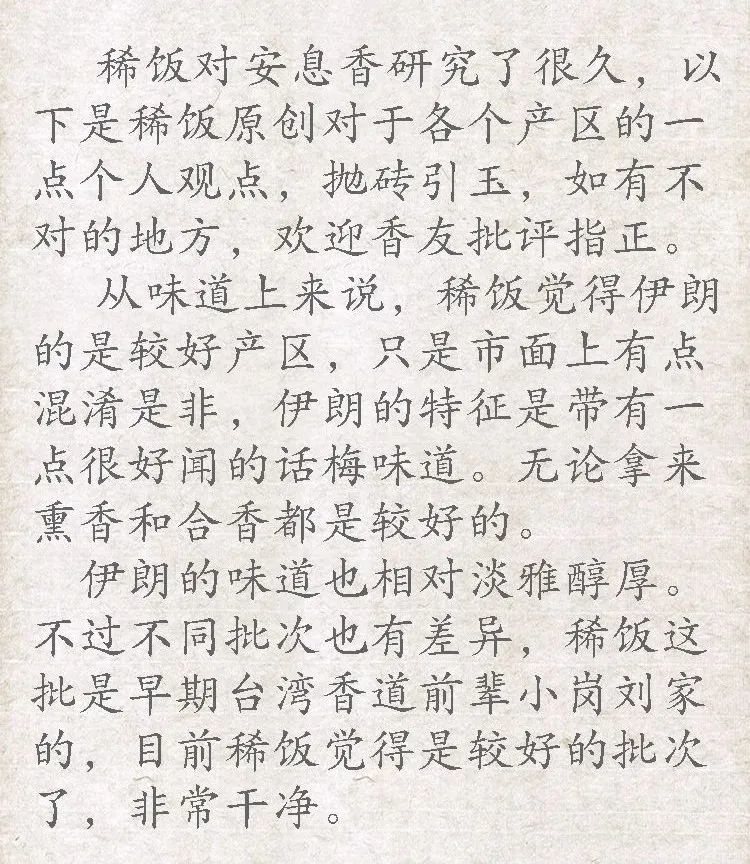 稀饭对安息香研究了很久，以
下是稀饭原创对于各个产区的一
点个人观点，抛砖引玉，如有不
对的地方，欢迎香友批评指正。
从味道上来说，稀饭觉得伊朗
的是较好产区，只是市面上有点
混淆是非，伊朗的特征是带有一
点很好闻的话梅味道。无论拿来
熏香和合香都是较好的。
伊朗的味道也相对淡雅醇厚。
不过不同批次也有差异，稀饭这
批是早期台湾香道前辈小岗刘家
的，目前稀饭觉得是较好的批次
了，非常干净。